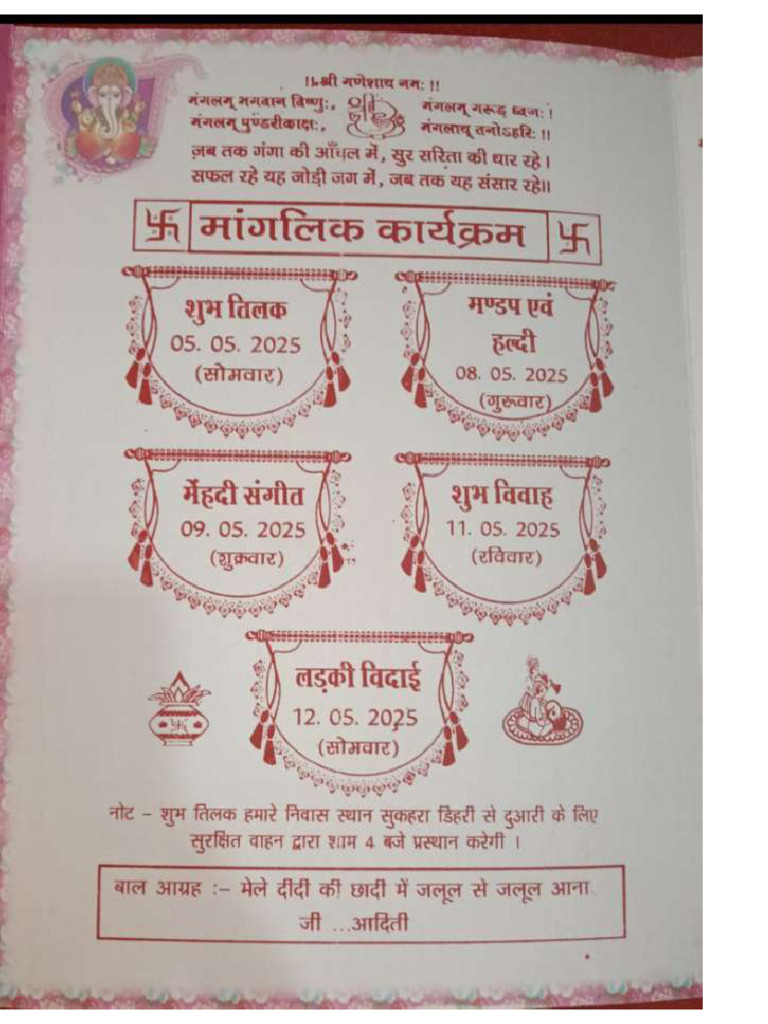 !! श्री गणेशाय नमः !!
मंगलम् भगवान विष्णुः, मंगलम् गरूड़ ध्वजः !
मंगलम् पुण्डरीकाक्षः, मंगलाय् तनोऽहरिः !!
ज़ब तक गंगा की आँचल में, सुर सरिता की धार रहे ।
सफल रहे यह जोड़ी जग में, जब तक यह संसार रहे॥
मांगलिक कार्यक्रम
शुभ तिलक
05. 05. 2025
(सोमवार)
मण्डप एवं
हल्दी
08. 05. 2025
(गुरूवार)
मेंहदी संगीत
09. 05. 2025
(शुक्रवार)
शुभ विवाह
11. 05. 2025
(रविवार)
लड़की विदाई
12. 05. 2025
(सोमवार)
नोट – शुभ तिलक हमारे निवास स्थान सुकहरा डिहरी से दुआरी के लिए
सुरक्षित वाहन द्वारा शाम 4 बजे प्रस्थान करेगी ।
बाल आग्रह :– मेले दीदी की छादी में जलूल से जलूल आना
जी ...आदिती